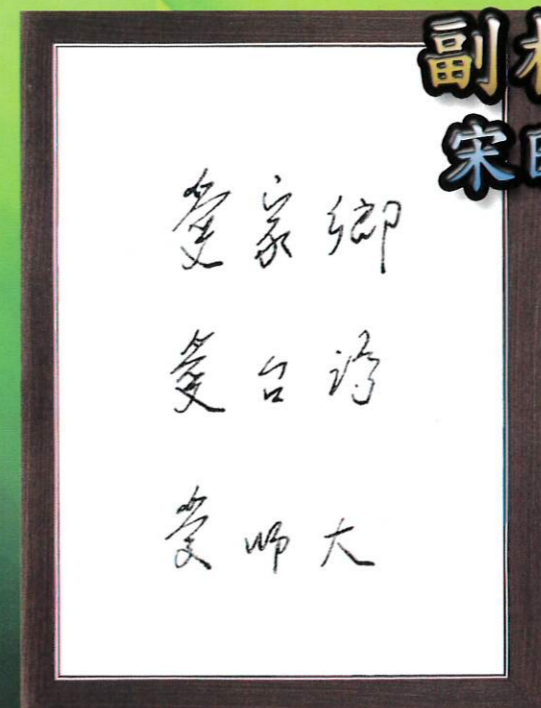 副
宋
愛家鄉
愛台湾
愛师大